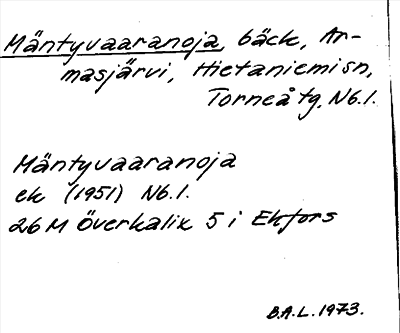 Mäntyvaaranoja, bäck, Ar-
masjärvi, Hietaniemi sn,
Torneå tg, Nb.l.
Mäntyvaaranoja
ek (1951) Nb.l.
26 M Överkalix 5 i Ekfors
B.A.L. 1973.